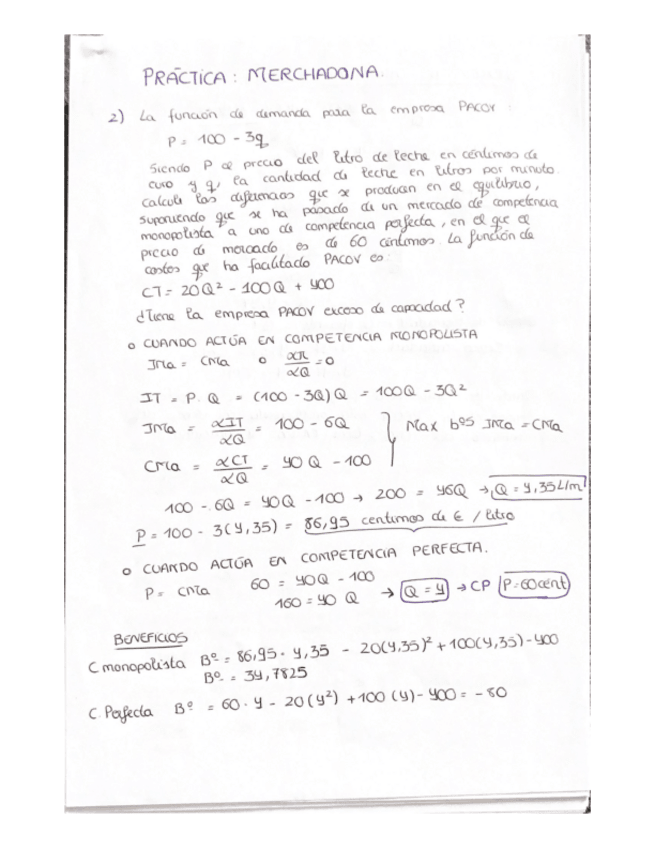 PRÁCTICA: MERCHADONA.
2) La función de demanda para la empresa PACOV:
P = 100 - 3q
Siendo P el precio del litro de leche en céntimos de
euro y q, la cantidad de leche en litros por minuto.
calcule las diferencias que se producen en el equilibrio,
suponiendo que se ha pasado de un mercado de competencia
monopolista a uno de competencia perfecta, en el que el
precio de mercado es de 60 céntimos. La función de
costes que ha facilitado PACOV es:
CT = 20Q² - 100Q + 400
¿Tiene la empresa PACOV exceso de capacidad?
o CUANDO ACTÚA EN COMPETENCIA MONOPOLISTA
IMa = CMa o απ/αQ = 0
IT = P. Q = (100 - 3Q) Q = 100Q - 3Q²
IMa = αIT/αQ = 100 - 6Q
Max bºs IMa = CMa
CMa = αCT/αQ = 40Q - 100
100 - 6Q = 40Q - 100 → 200 = 46Q → Q = 4,35L/m
P = 100 - 3(4,35) = 86,95 centimos de € / litro
o CUANDO ACTÚA EN COMPETENCIA PERFECTA.
P = CMa 60 = 40Q - 100
160 = 40 Q → Q = 4 → CP P=60cent
BENEFICIOS
C monopolista Bº = 86,95 · 4,35 - 20(4,35)² + 100(4,35) - 400
Bº = 34,7825
C. Perfecta Bº = 60 · 4 - 20(4²) + 100 (4) - 400 = - 80